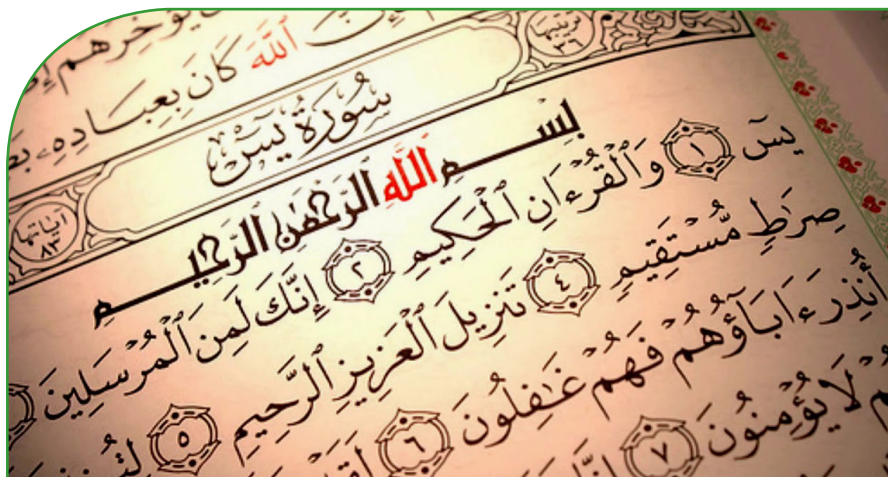 يُؤَخِّرُهُمْ
ٱللَّهَ كَانَ بِعِبَادِهِۦ
ترتيبها ٣٦
سُورَةُ يسٓ
آياتها ٨٣
بِسْمِ ٱللَّهِ ٱلرَّحْمَٰنِ ٱلرَّحِيمِ
يسٓ ١ وَٱلْقُرْءَانِ ٱلْحَكِيمِ ٢ إِنَّكَ لَمِنَ ٱلْمُرْسَلِينَ
صِرَٰطٍ مُّسْتَقِيمٍ ٤ تَنزِيلَ ٱلْعَزِيزِ ٱلرَّحِيمِ ٥
أُنذِرَ ءَابَآؤُهُمْ فَهُمْ غَٰفِلُونَ ٦
لَا يُؤْمِنُونَ ٧